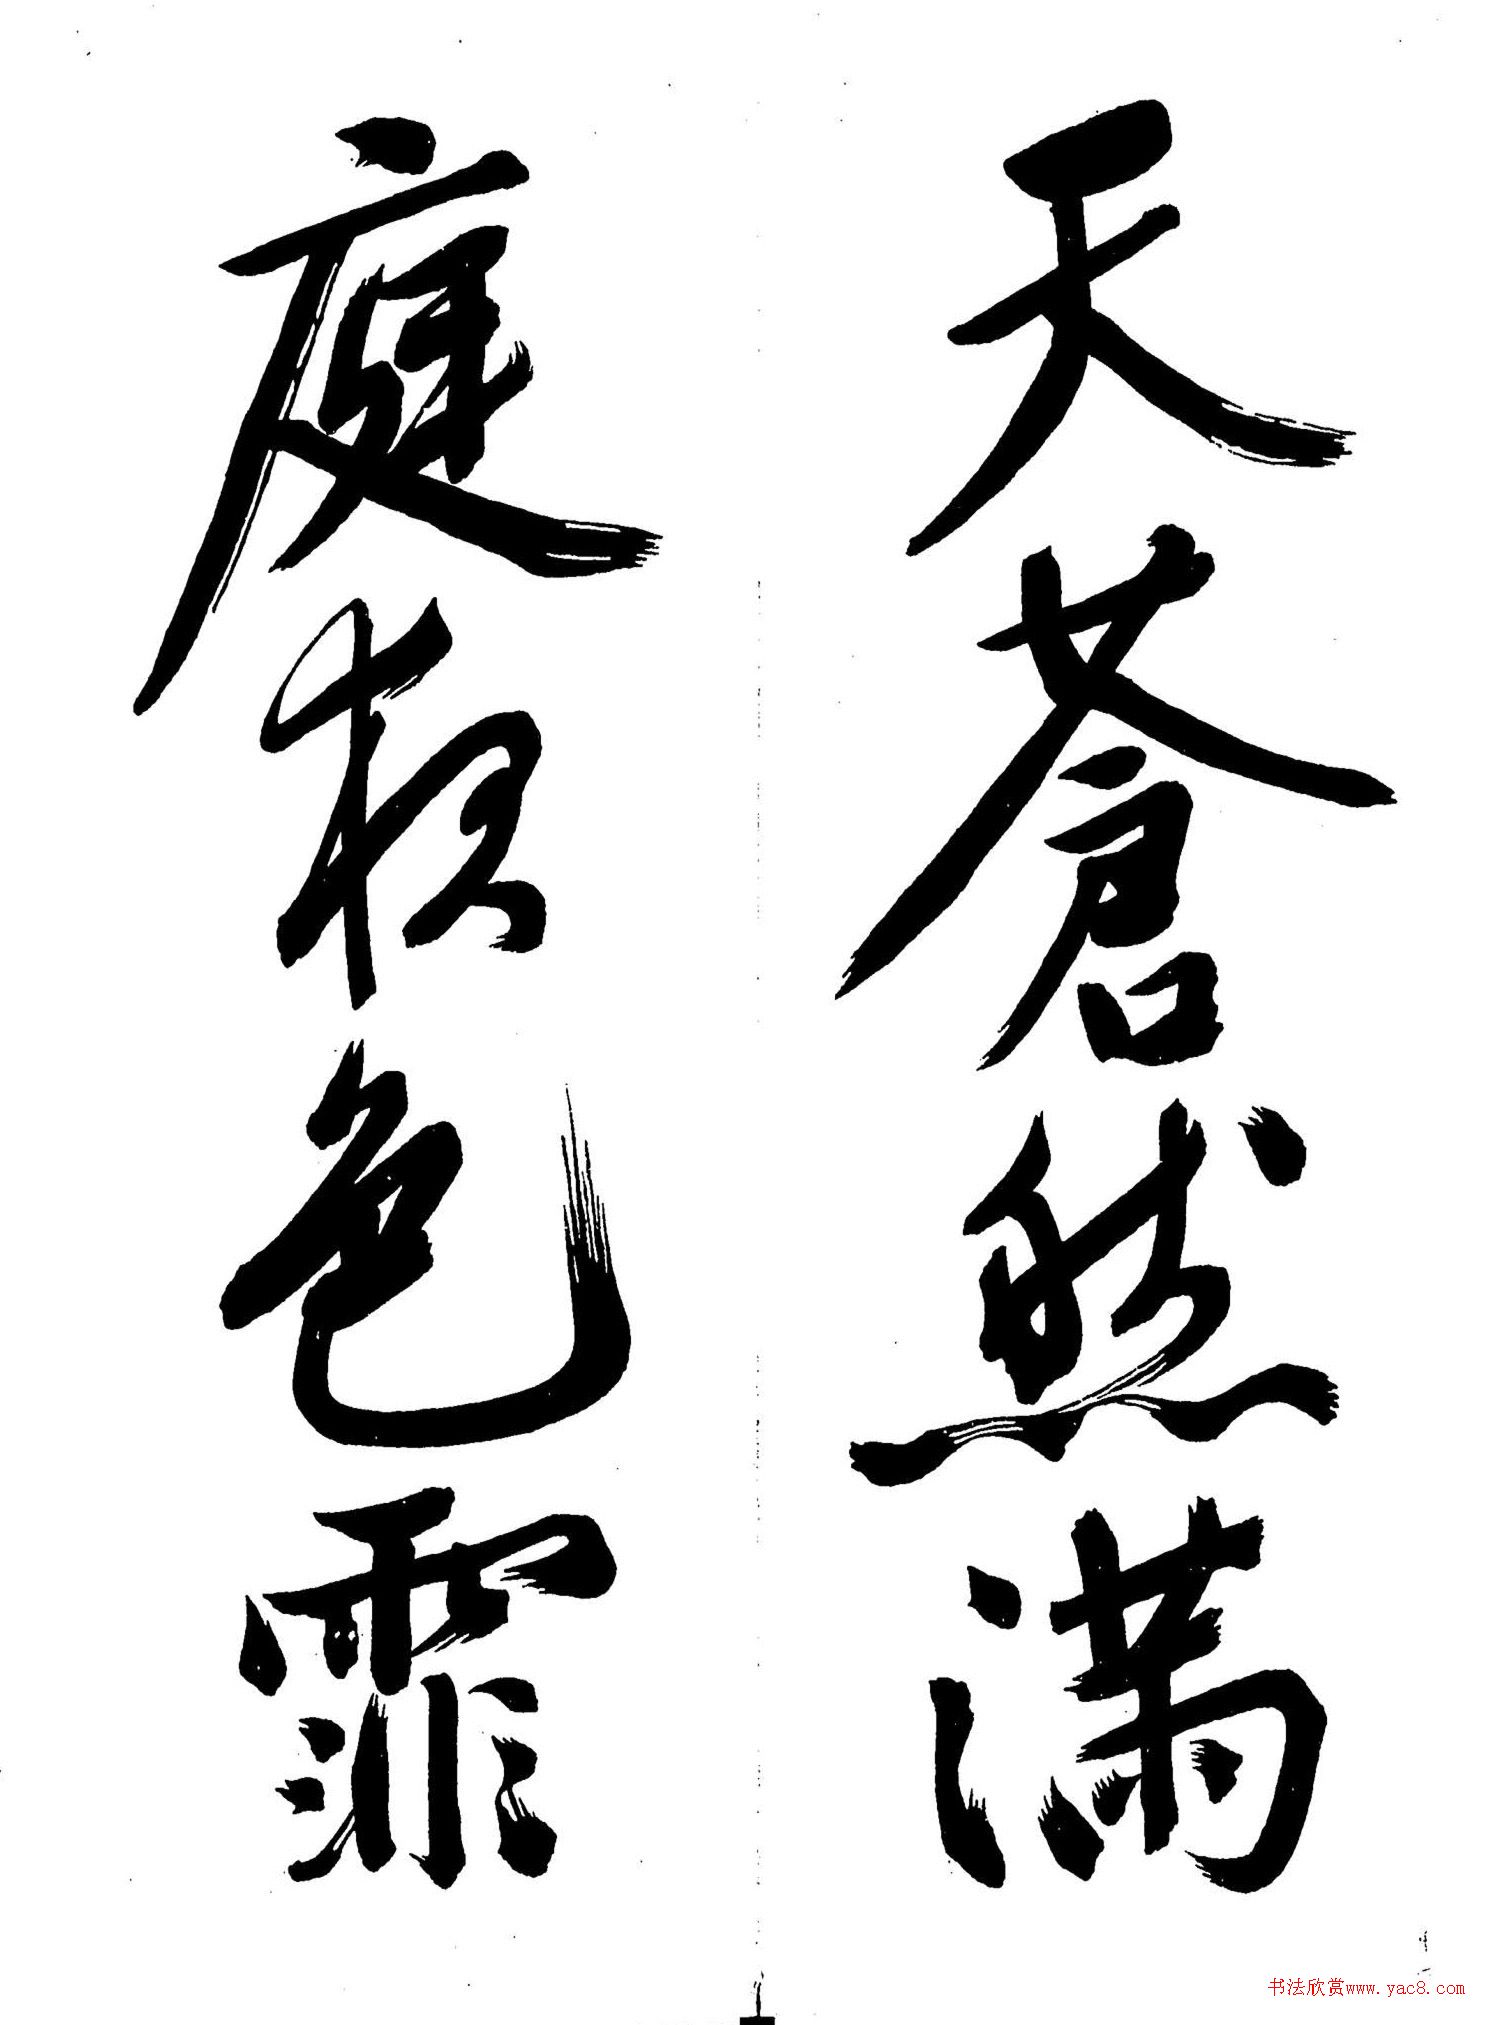 天蒼然滿
庭秋色霏
书法欣赏www.yac8.com